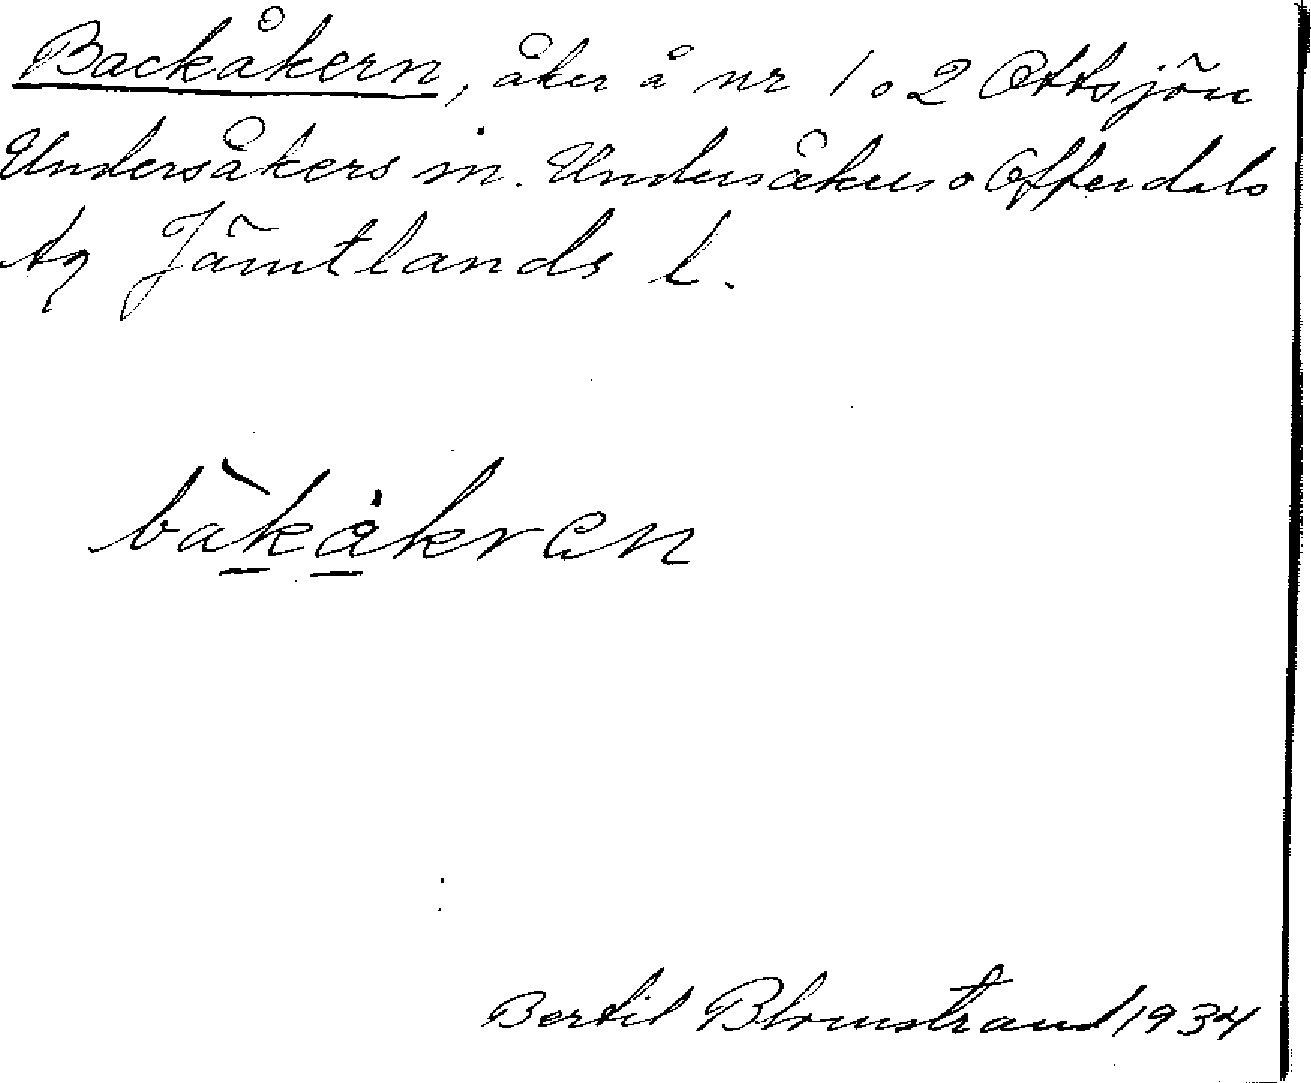 Backåkern, åker å nr 1 o 2 Ottsjön
Undersåkers sn. Undersåkers o Offerdals
tg Jämtlands l.
bàkåkren
Bertil Blomstrand 1934